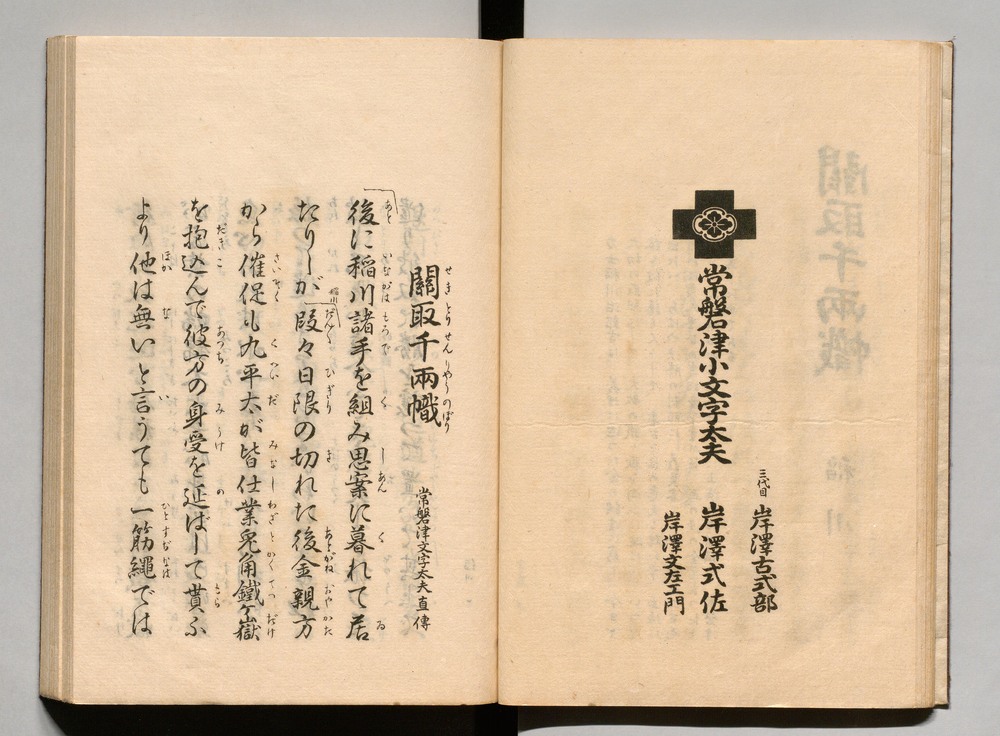 常磐津小文字太夫
三代目 岸澤古式部
岸澤式佐
岸澤文左エ門
關取千兩幟
せきとりせんりやうのぼり
常磐津文字太夫直傳
後に稲川諸手を組み思案に暮れて居
たりしが段々日限の切れた後金親方
から催促も九平太が皆仕業兎角鐵ヶ嶽
を抱込んで彼方の身受を延ばして貰ふ
より他は無いと言うても一筋縄では